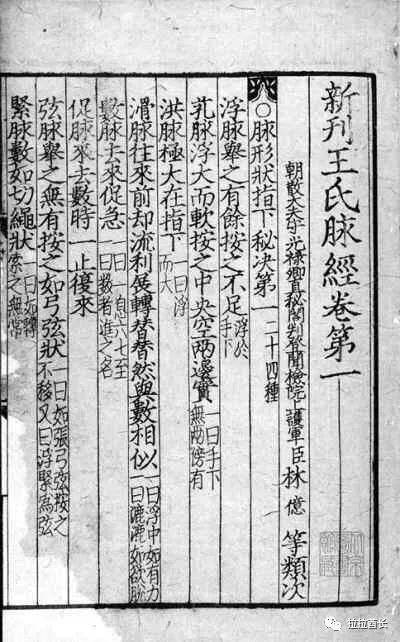 新刊王氏脉經卷第一
朝散大夫守光禄卿直秘閣判登聞檢院上護軍臣林億等類次
○脉形狀指下秘決第一二十四種
浮脉舉之有餘按之不足浮於手下
芤脉浮大而軟按之中央空兩邊實一曰手下無兩傍有
洪脉極大在指下一曰浮而大
滑脉往來前却流利展轉替替然與數相似一曰浮中如有力一曰漉漉如欲脫
數脉去來促急一曰一息六七至一曰數者進之名
促脉來去數時一止復來
弦脉舉之無有按之如弓弦狀一曰如張弓弦按之不移又曰浮緊爲弦
緊脉數如切繩狀一曰如轉索之無常
拉拉酋长